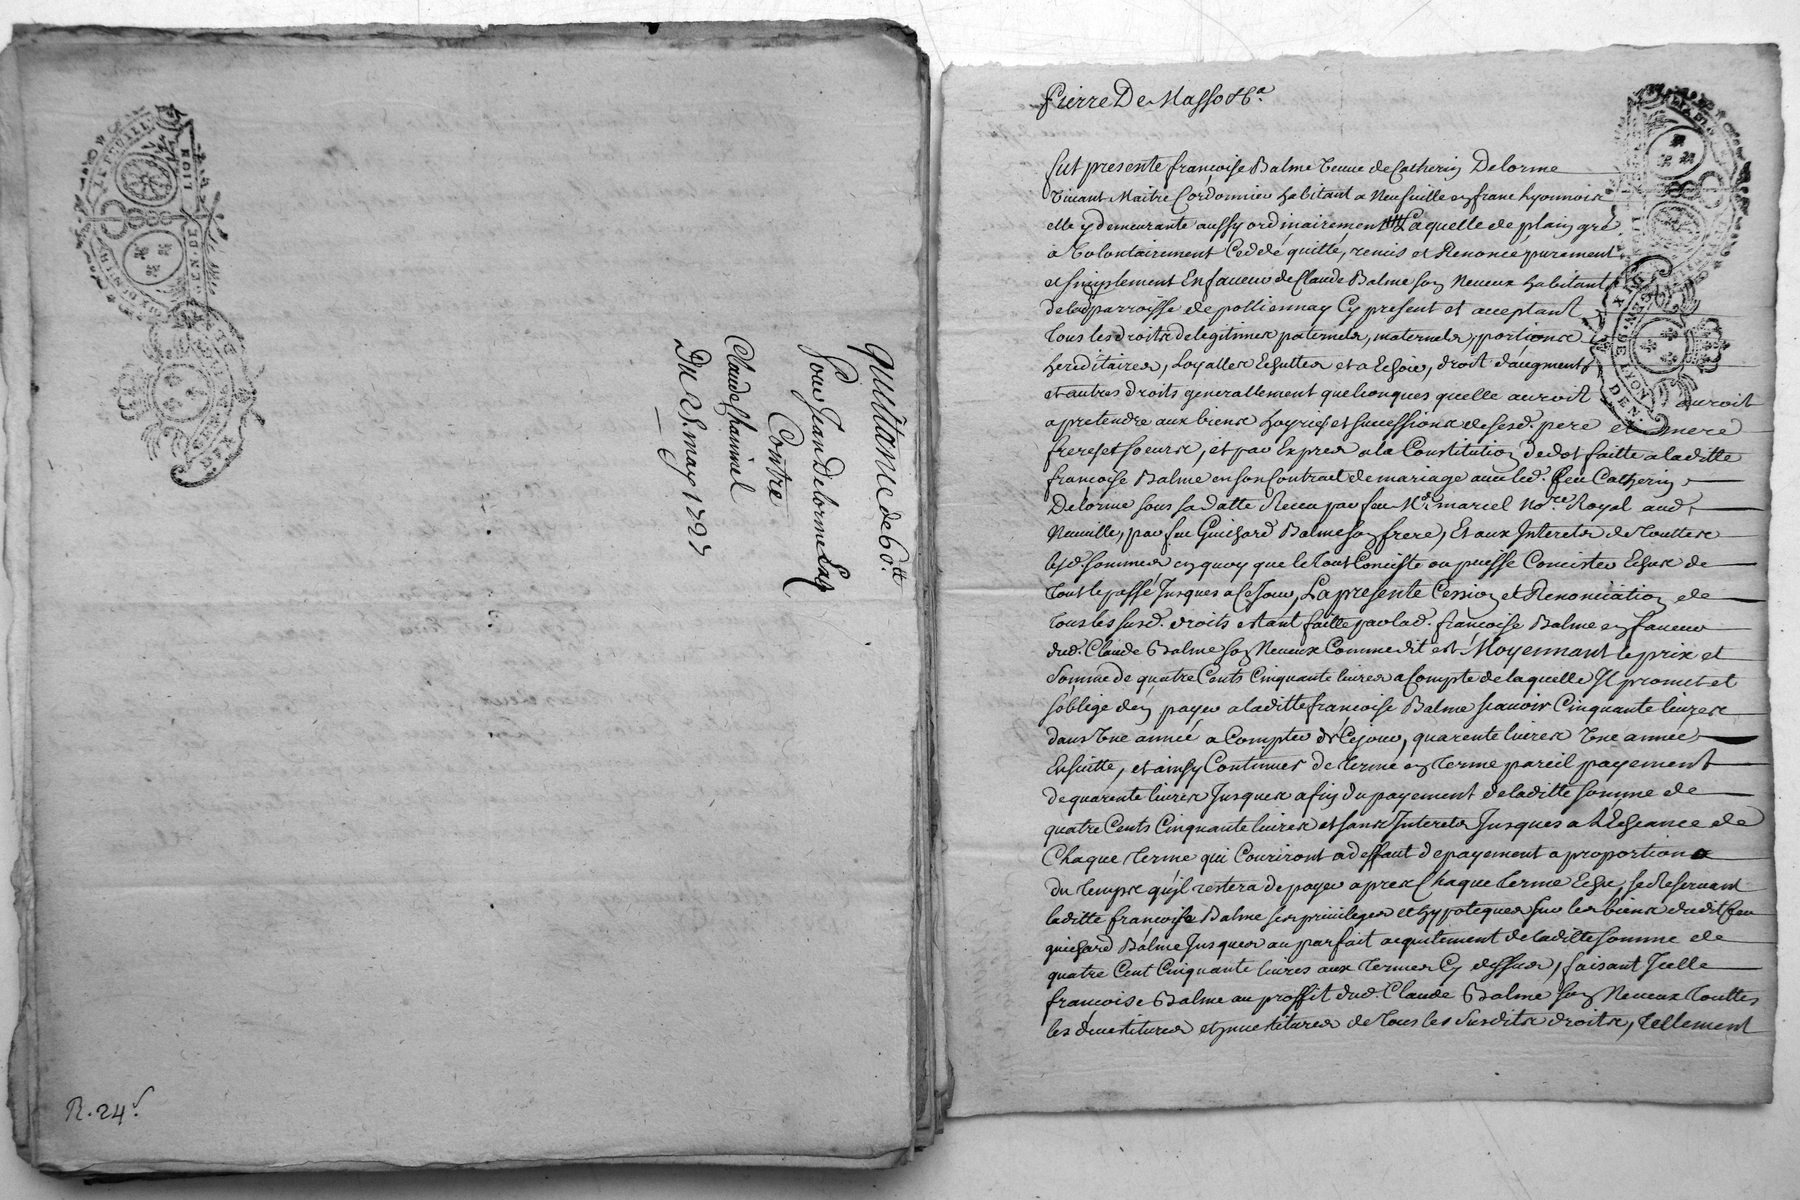 quittance de 60.tt
Pour Jean Delorme
Contre
Claude
Du may 1727
R. 24s.
GEN. DE LYON
Pierre De Masso &a
fut presente francoise Balme veuve de Catherin Delorme
vivant Maitre Cordonnier habitant a Neufville en franc Lyonnois
elle y demeurante aussy ordinairement Laquelle de plain gré
a volontairement Ceddé, quitté, remis et Renonce purement
et simplement En faveur de Claude Balme son Neveux habitant
de la parroisse de pollionnay Cy present et acceptant
Tous les droits de legitimes paternels, maternels, portions
hereditaires, Loyalles Echuttes et a Echoir, droit d'augment
et autres droits generallement quelconques quelle auroit auroit
a pretendre aux biens hoyries et successions de sesd. pere et mere
freres et soeurs, et par Exprès a la Constitution de dot faitte a laditte
francoise Balme en son Contract de mariage avec led. feu Catherin
Delorme sous sa datte Receu par feu Me. marcel Nore. Royal aud.
Neuville, par feu Guichard Balme son frere, Et aux Interets de Touttes
lesd. sommes en quoy que le Tout Consiste ou puisse Consister Echus de
tout le passé Jusques a Cejour, La presente Cession et Renonciation de
tous les susd. droits estant faitte par lad. françoise Balme en faveur
dud. Claude Balme son Neveux Comme dit est Moyennant le prix et
Somme de quatre Cents Cinquante livres a Compte de laquelle Il promet et
s'oblige d'en payer a laditte francoise Balme scavoir Cinquante livres
dans une année a Compter de Cejour, quarente livres une année
Ensuitte, et ainsy Continuer de terme en terme pareil payement
de quarente livres Jusques a fin du payement de laditte somme de
quatre Cents Cinquante livres et sans Interets Jusques a l'Echeance de
Chaque terme qui Couriront a deffaut de payement a proportion
du temps qu'il restera de payer apres Chaque terme Echu, se Reservant
laditte françoise Balme ses privileges et hypoteques sur les biens dudit feu
guichard Balme Jusques au parfait acquitement de laditte somme de
quatre Cent Cinquante livres aux termes Cy dessus, faisant Icelle
françoise Balme au proffit dud. Claude Balme son Neveux touttes
les devestitures et investitures de tous les susdits droits, tellement
GEN. DE LYON